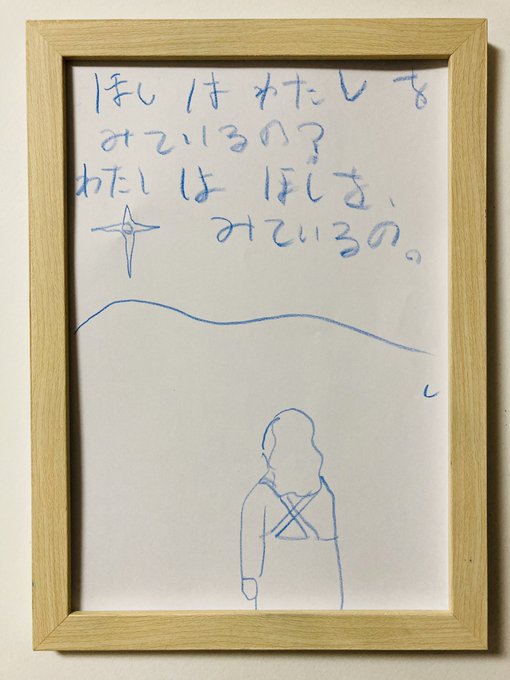 ほし は わたし を
みているの？
わたし は ほしを、
みているの。